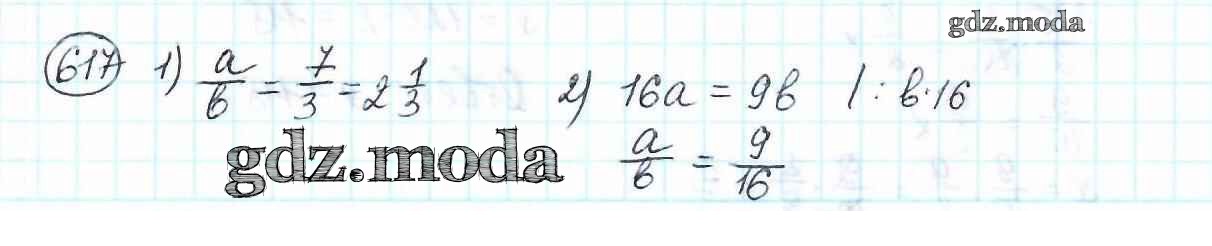 gdz.moda
617 1) a/b = 7/3 = 2 1/3 2) 16a = 9b / : b·16
gdz.moda a/b = 9/16